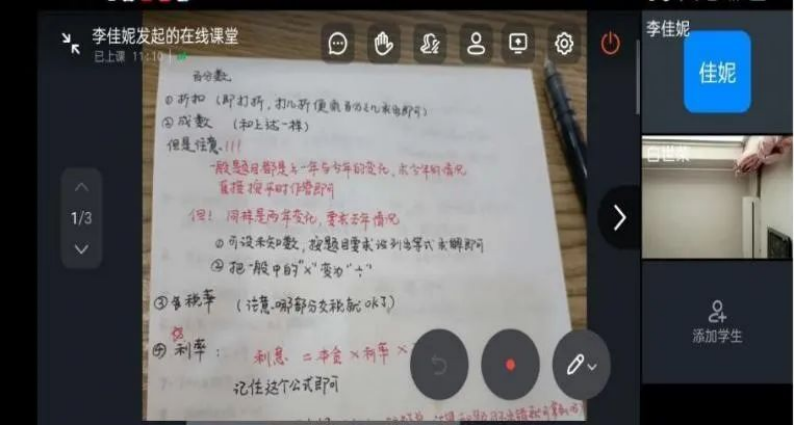 李佳妮发起的在线课堂
已上课 11:10
李佳妮
佳妮
添加学生
1/3
百分数.
①折扣 (即打折,打几折便求百分之几求出即可)
②成数 (和上述一样)
但是注意.!!!
一般题目都是去年与今年的变化,求今年的情况
直接按平时作答即可
但! 同样是两年变化,要求去年情况
①可设未知数,按题目要求 列出等式求解即可
②把一般中的"×"变为"÷"
③ 税率 (注意.哪部分交税就OK了)
④利率: 利息 = 本金×利率×
记住这个公式即可